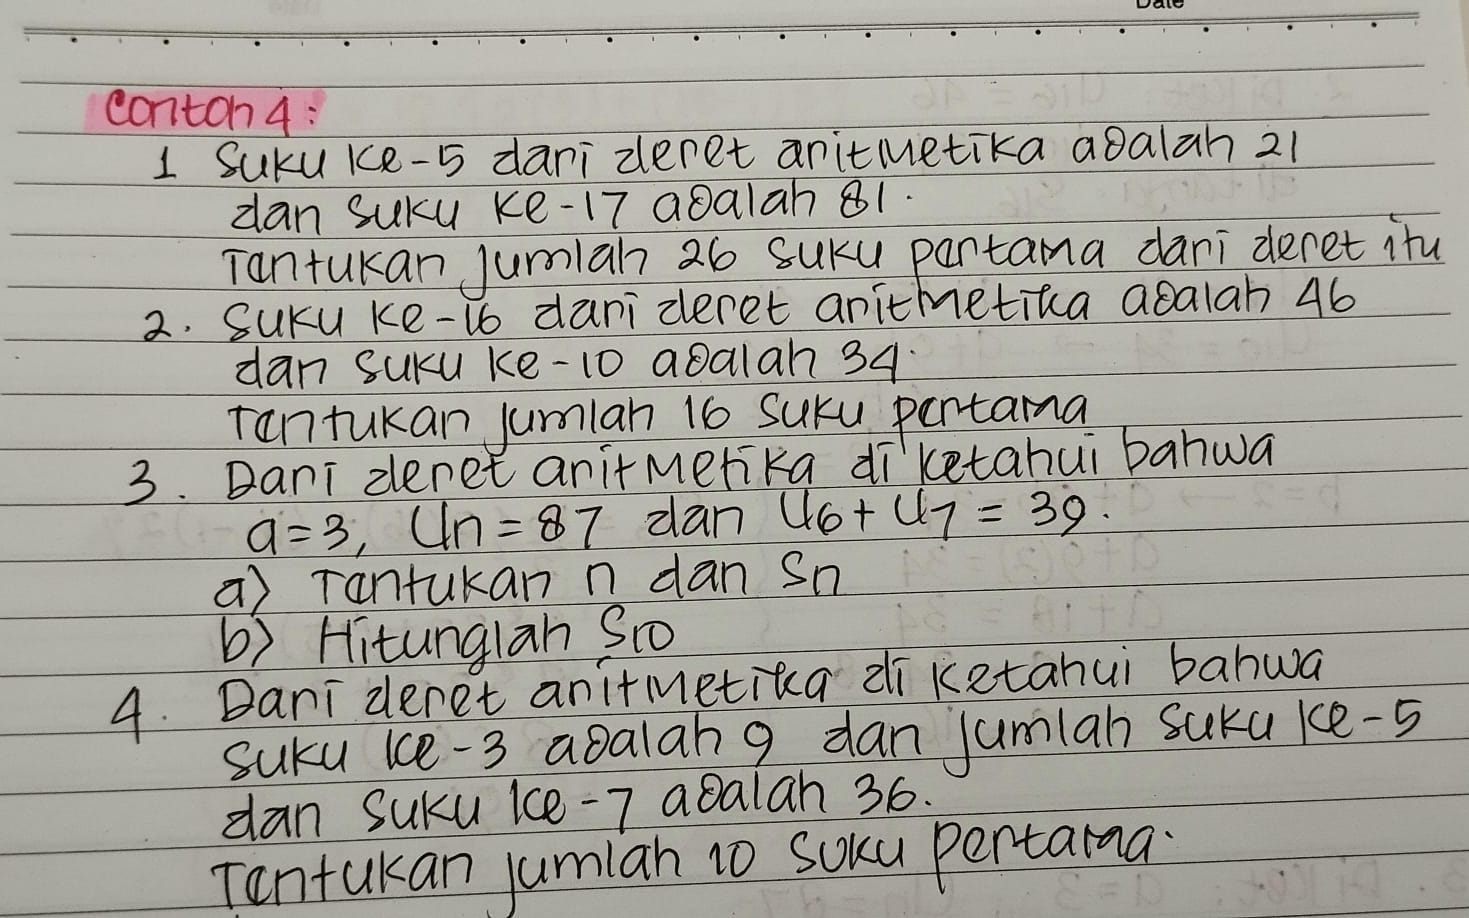 Date
Contoh 4:
1 Suku ke-5 dari deret aritmetika adalah 21
dan suku ke-17 adalah 81.
Tentukan jumlah 26 suku pertama dari deret itu
2. Suku ke-16 dari deret aritmetika adalah 46
dan suku ke-10 adalah 34.
Tentukan jumlah 16 suku pertama
3. Dari deret aritmetika di ketahui bahwa
a=3, Un=87 dan U6+U7=39.
a) Tentukan n dan Sn
b) Hitunglah S10
4. Dari deret aritmetika di ketahui bahwa
suku ke-3 adalah 9 dan jumlah suku ke-5
dan suku ke-7 adalah 36.
Tentukan jumlah 10 suku pertama.